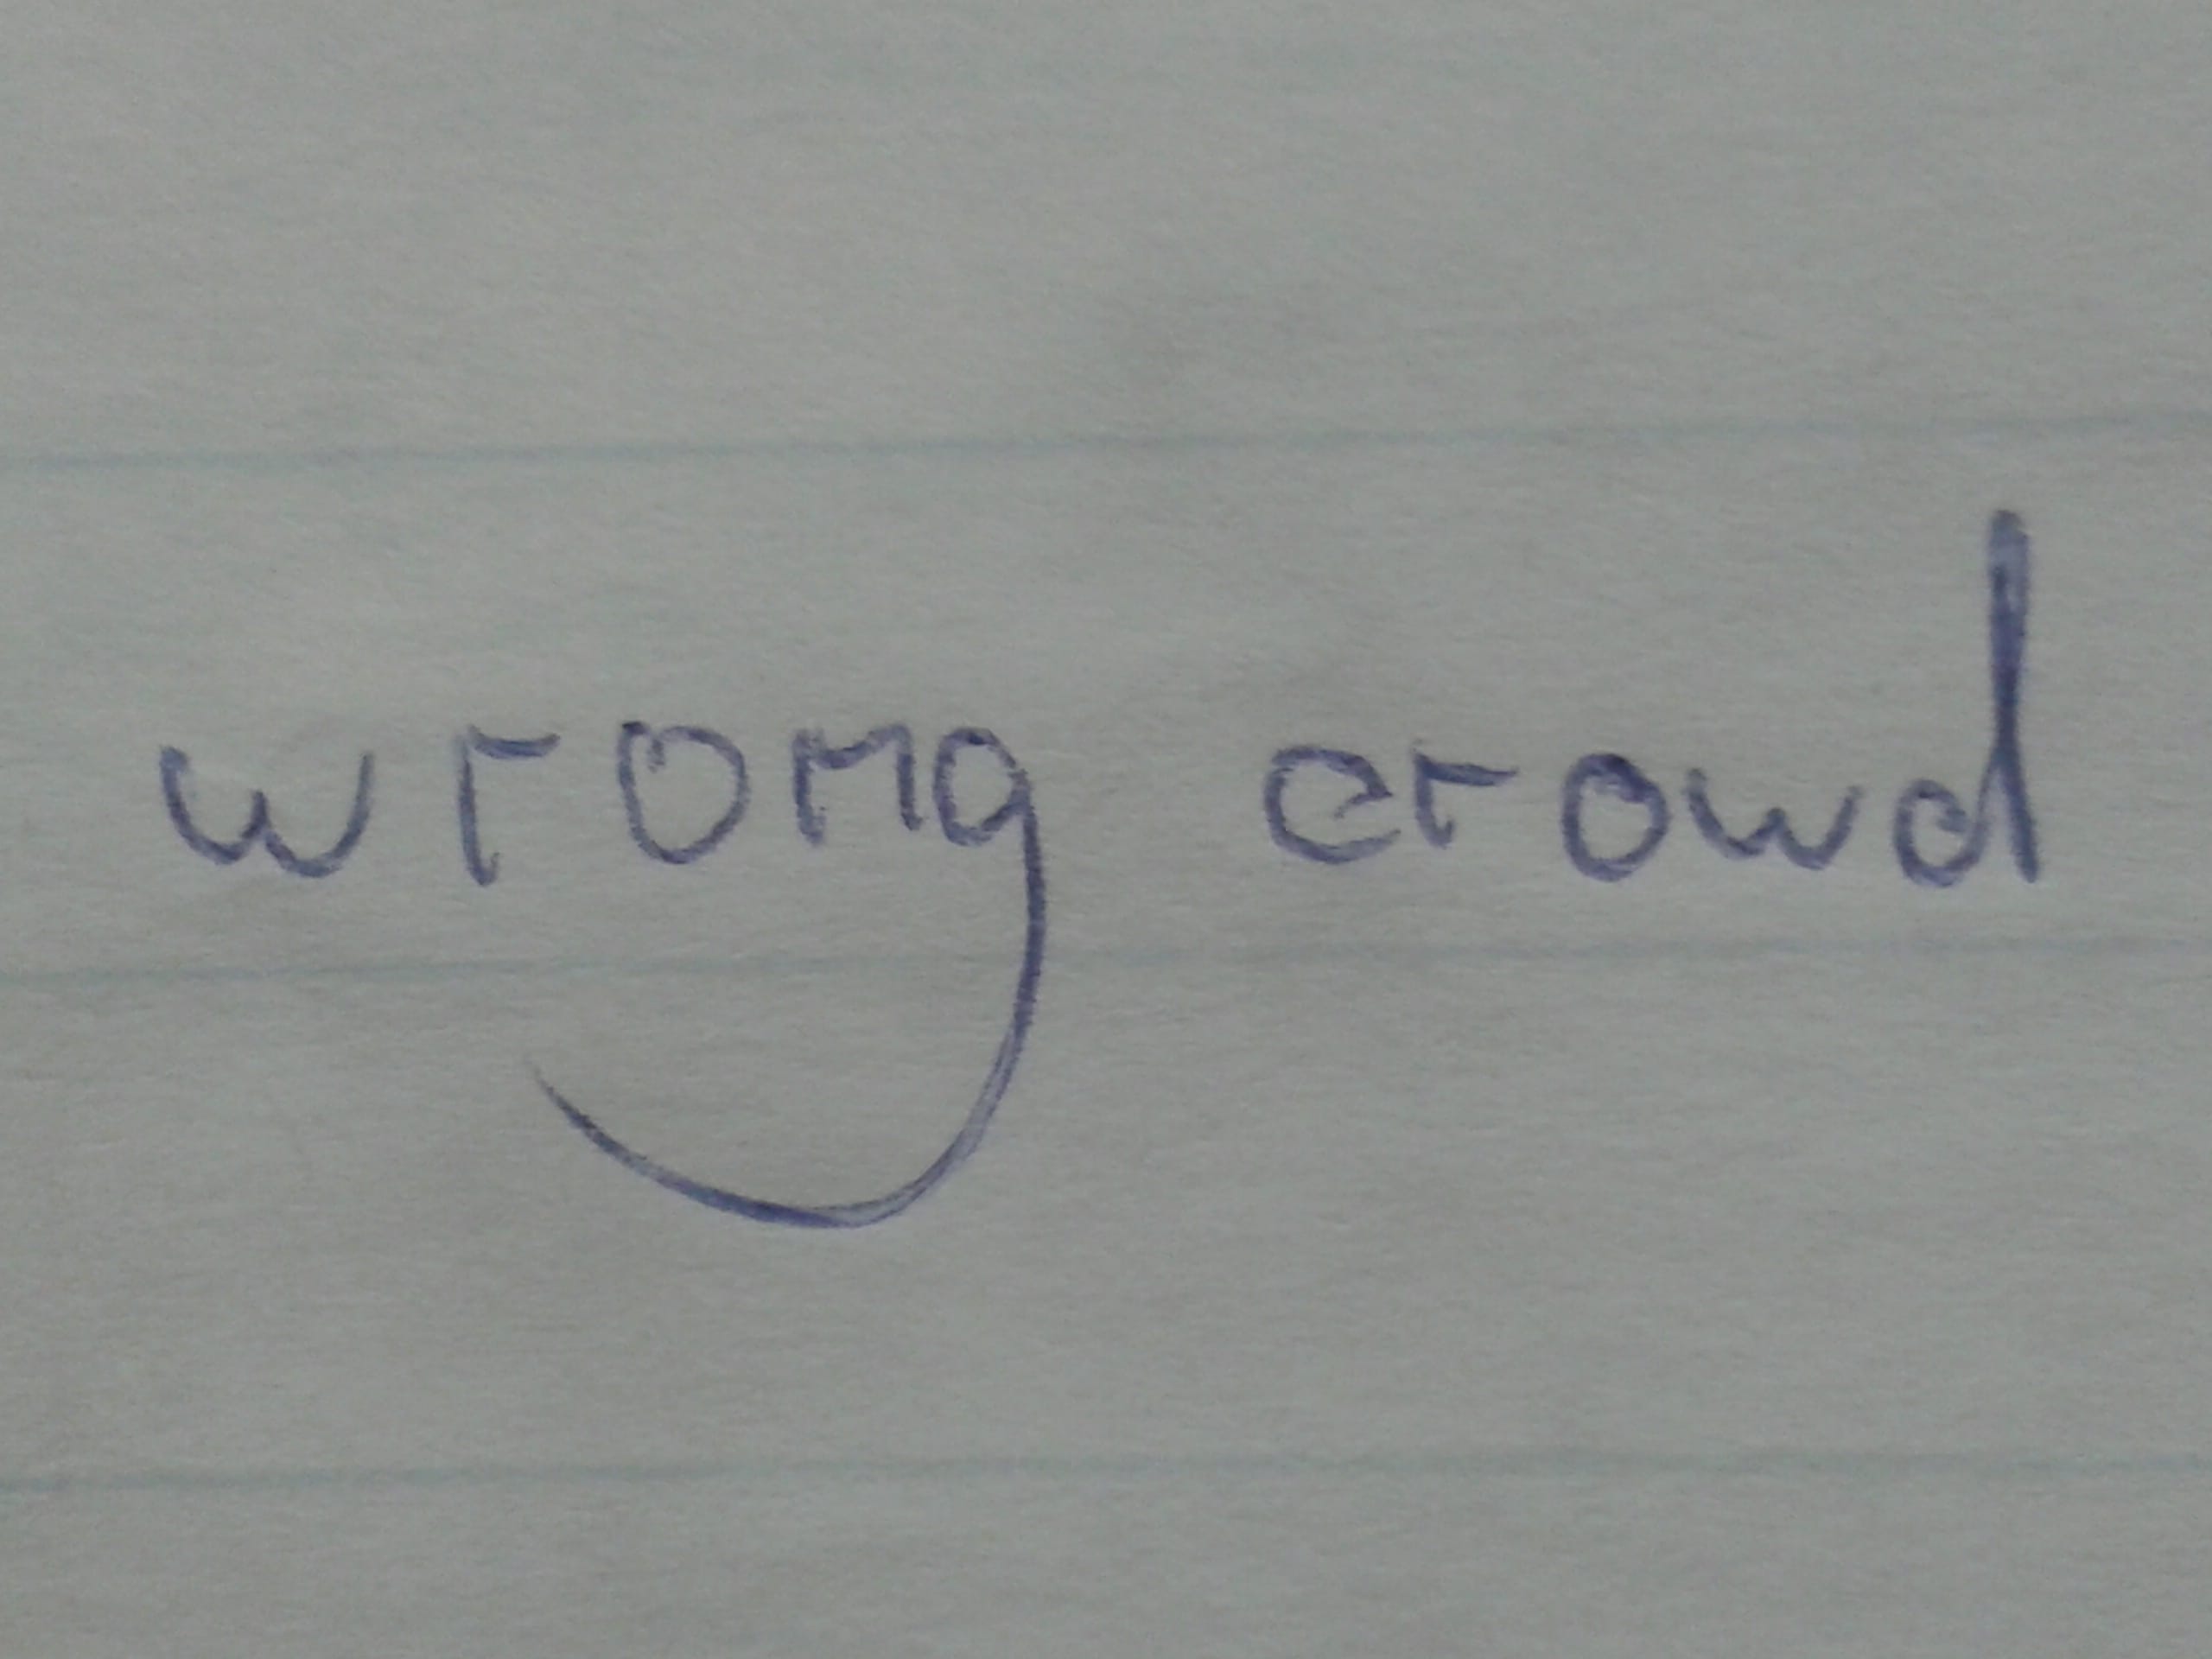 wrong crowd